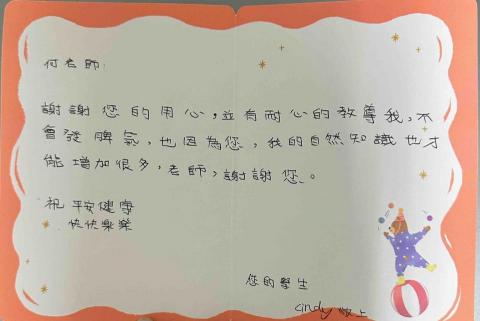 何老師:
謝謝您的用心,並有耐心的教導我,不
會發脾氣,也因為您,我的自然知識也才
能增加很多,老師,謝謝您。
祝 平安健康
快快樂樂
您的學生
cindy 敬上